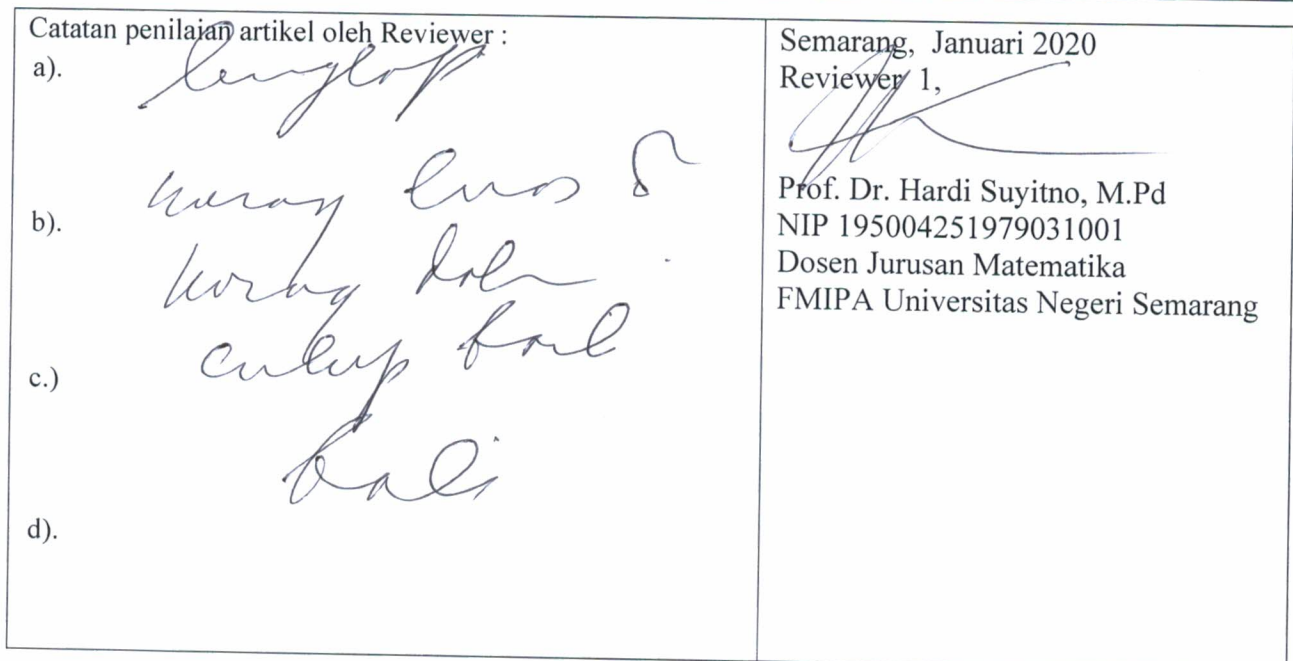 Catatan penilaian artikel oleh Reviewer :
a). lengkap
kurang luas &
b).
kurang dalam
cukup baik
c.)
baik
d).
Semarang, Januari 2020
Reviewer 1,
Prof. Dr. Hardi Suyitno, M.Pd
NIP 195004251979031001
Dosen Jurusan Matematika
FMIPA Universitas Negeri Semarang